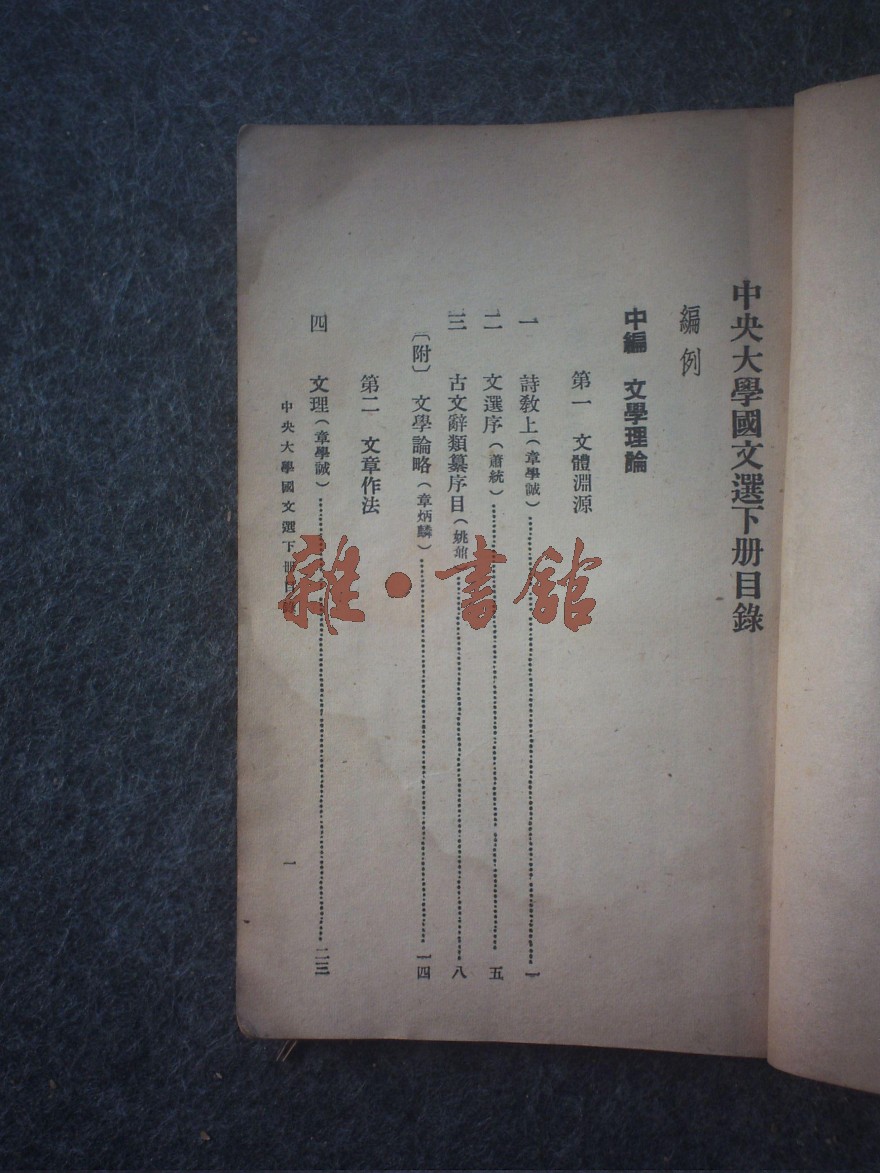 中央大學國文選下册目錄
編例
中編 文學理論
第一 文體淵源
一 詩教上（章學誠） 一
二 文選序（蕭統） 五
三 古文辭類纂序目（姚鼐 八
〔附〕文學論略（章炳麟） 一四
第二 文章作法
四 文理（章學誠） 二三
中央大學國文選下册目錄 一
雜·書館